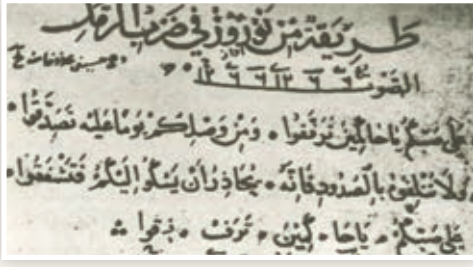 طريقة من نوروز في ضرب الرمل
الصوت
على صبكم يا حاكمين ترفقوا ۰ ومن وصلكم يوما عليه تصدقوا ۰
ولا تتلفوه بالصدود فانه ۰ يحاذر ان يشكوا اليكم فتشفقوا ۰
على صبكم ۰ يا حا ۰ كمين ۰ ترف ۰ فقوا